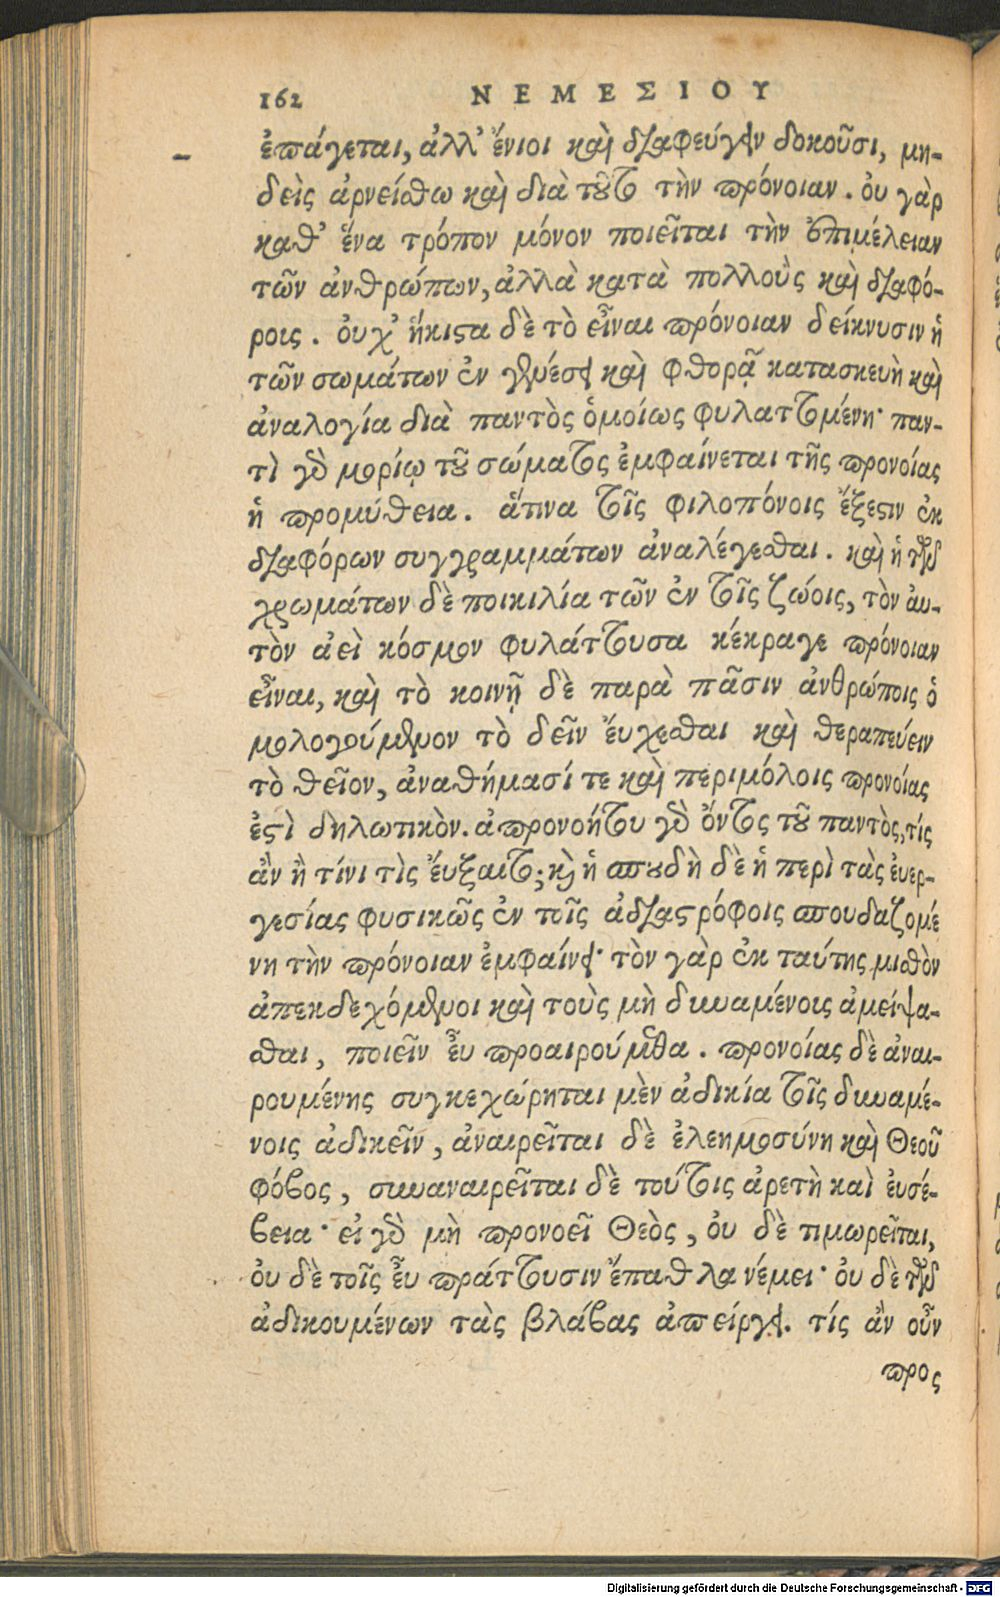 162 ΝΕΜΕΣΙΟΥ
ἐπάγεται, ἀλλ᾽ ἔνιοι καὶ διαφεύγειν δοκοῦσι, μη-
δεὶς ἀρνείσθω καὶ διὰ τοῦτο τὴν πρόνοιαν. οὐ γὰρ
καθ᾽ ἕνα τρόπον μόνον ποιεῖται τὴν ἐπιμέλειαν
τῶν ἀνθρώπων, ἀλλὰ κατὰ πολλοὺς καὶ διαφό-
ροις. οὐχ᾽ ἥκιστα δὲ τὸ εἶναι πρόνοιαν δείκνυσιν ἡ
τῶν σωμάτων ἐν γενέσει καὶ φθορᾷ κατασκευὴ καὶ
ἀναλογία διὰ παντὸς ὁμοίως φυλαττομένη· παν-
τὶ γὰρ μορίῳ τοῦ σώματος ἐμφαίνεται τῆς προνοίας
ἡ προμύθεια. ἅτινα τοῖς φιλοπόνοις ἔξεστιν ἐκ
διαφόρων συγγραμμάτων ἀναλέγεσθαι. καὶ ἡ τῶν
χρωμάτων δὲ ποικιλία τῶν ἐν τοῖς ζώοις, τὸν αὐ-
τὸν ἀεὶ κόσμον φυλάττουσα κέκραγε πρόνοιαν
εἶναι, καὶ τὸ κοινῇ δὲ παρὰ πᾶσιν ἀνθρώποις ὁ
μολογούμενον τὸ δεῖν εὔχεσθαι καὶ θεραπεύειν
τὸ θεῖον, ἀναθήμασί τε καὶ περιμόλοις προνοίας
ἐστὶ δηλωτικὸν. ἀπρονοήτου γὰρ ὄντος τοῦ παντὸς, τίς
ἂν ἢ τίνι τὶς εὔξαιτο; καὶ ἡ σπουδὴ δὲ ἡ περὶ τὰς εὐερ-
γεσίας φυσικῶς ἐν τοῖς ἀδιαστρόφοις σπουδαζομέ
νη τὴν πρόνοιαν ἐμφαίνει· τὸν γὰρ ἐκ ταύτης μισθὸν
ἀπεκδεχόμενοι καὶ τοὺς μὴ δυναμένοις ἀμείψα-
σθαι, ποιεῖν εὖ προαιρούμεθα. προνοίας δὲ ἀναι-
ρουμένης συγκεχώρηται μὲν ἀδικία τοῖς δυναμέ-
νοις ἀδικεῖν, ἀναιρεῖται δὲ ἐλεημοσύνη καὶ Θεοῦ
φόβος, συναναιρεῖται δὲ τούτοις ἀρετὴ καὶ εὐσέ-
βεια· εἰ γὰρ μὴ προνοεῖ Θεὸς, οὐ δὲ τιμωρεῖται,
οὐ δὲ τοῖς εὖ πράττουσιν ἔπαθλα νέμει· οὐ δὲ τῶν
ἀδικουμένων τὰς βλάβας ἀπείργει. τίς ἂν οὖν
προς
Digitalisierung gefördert durch die Deutsche Forschungsgemeinschaft - DFG